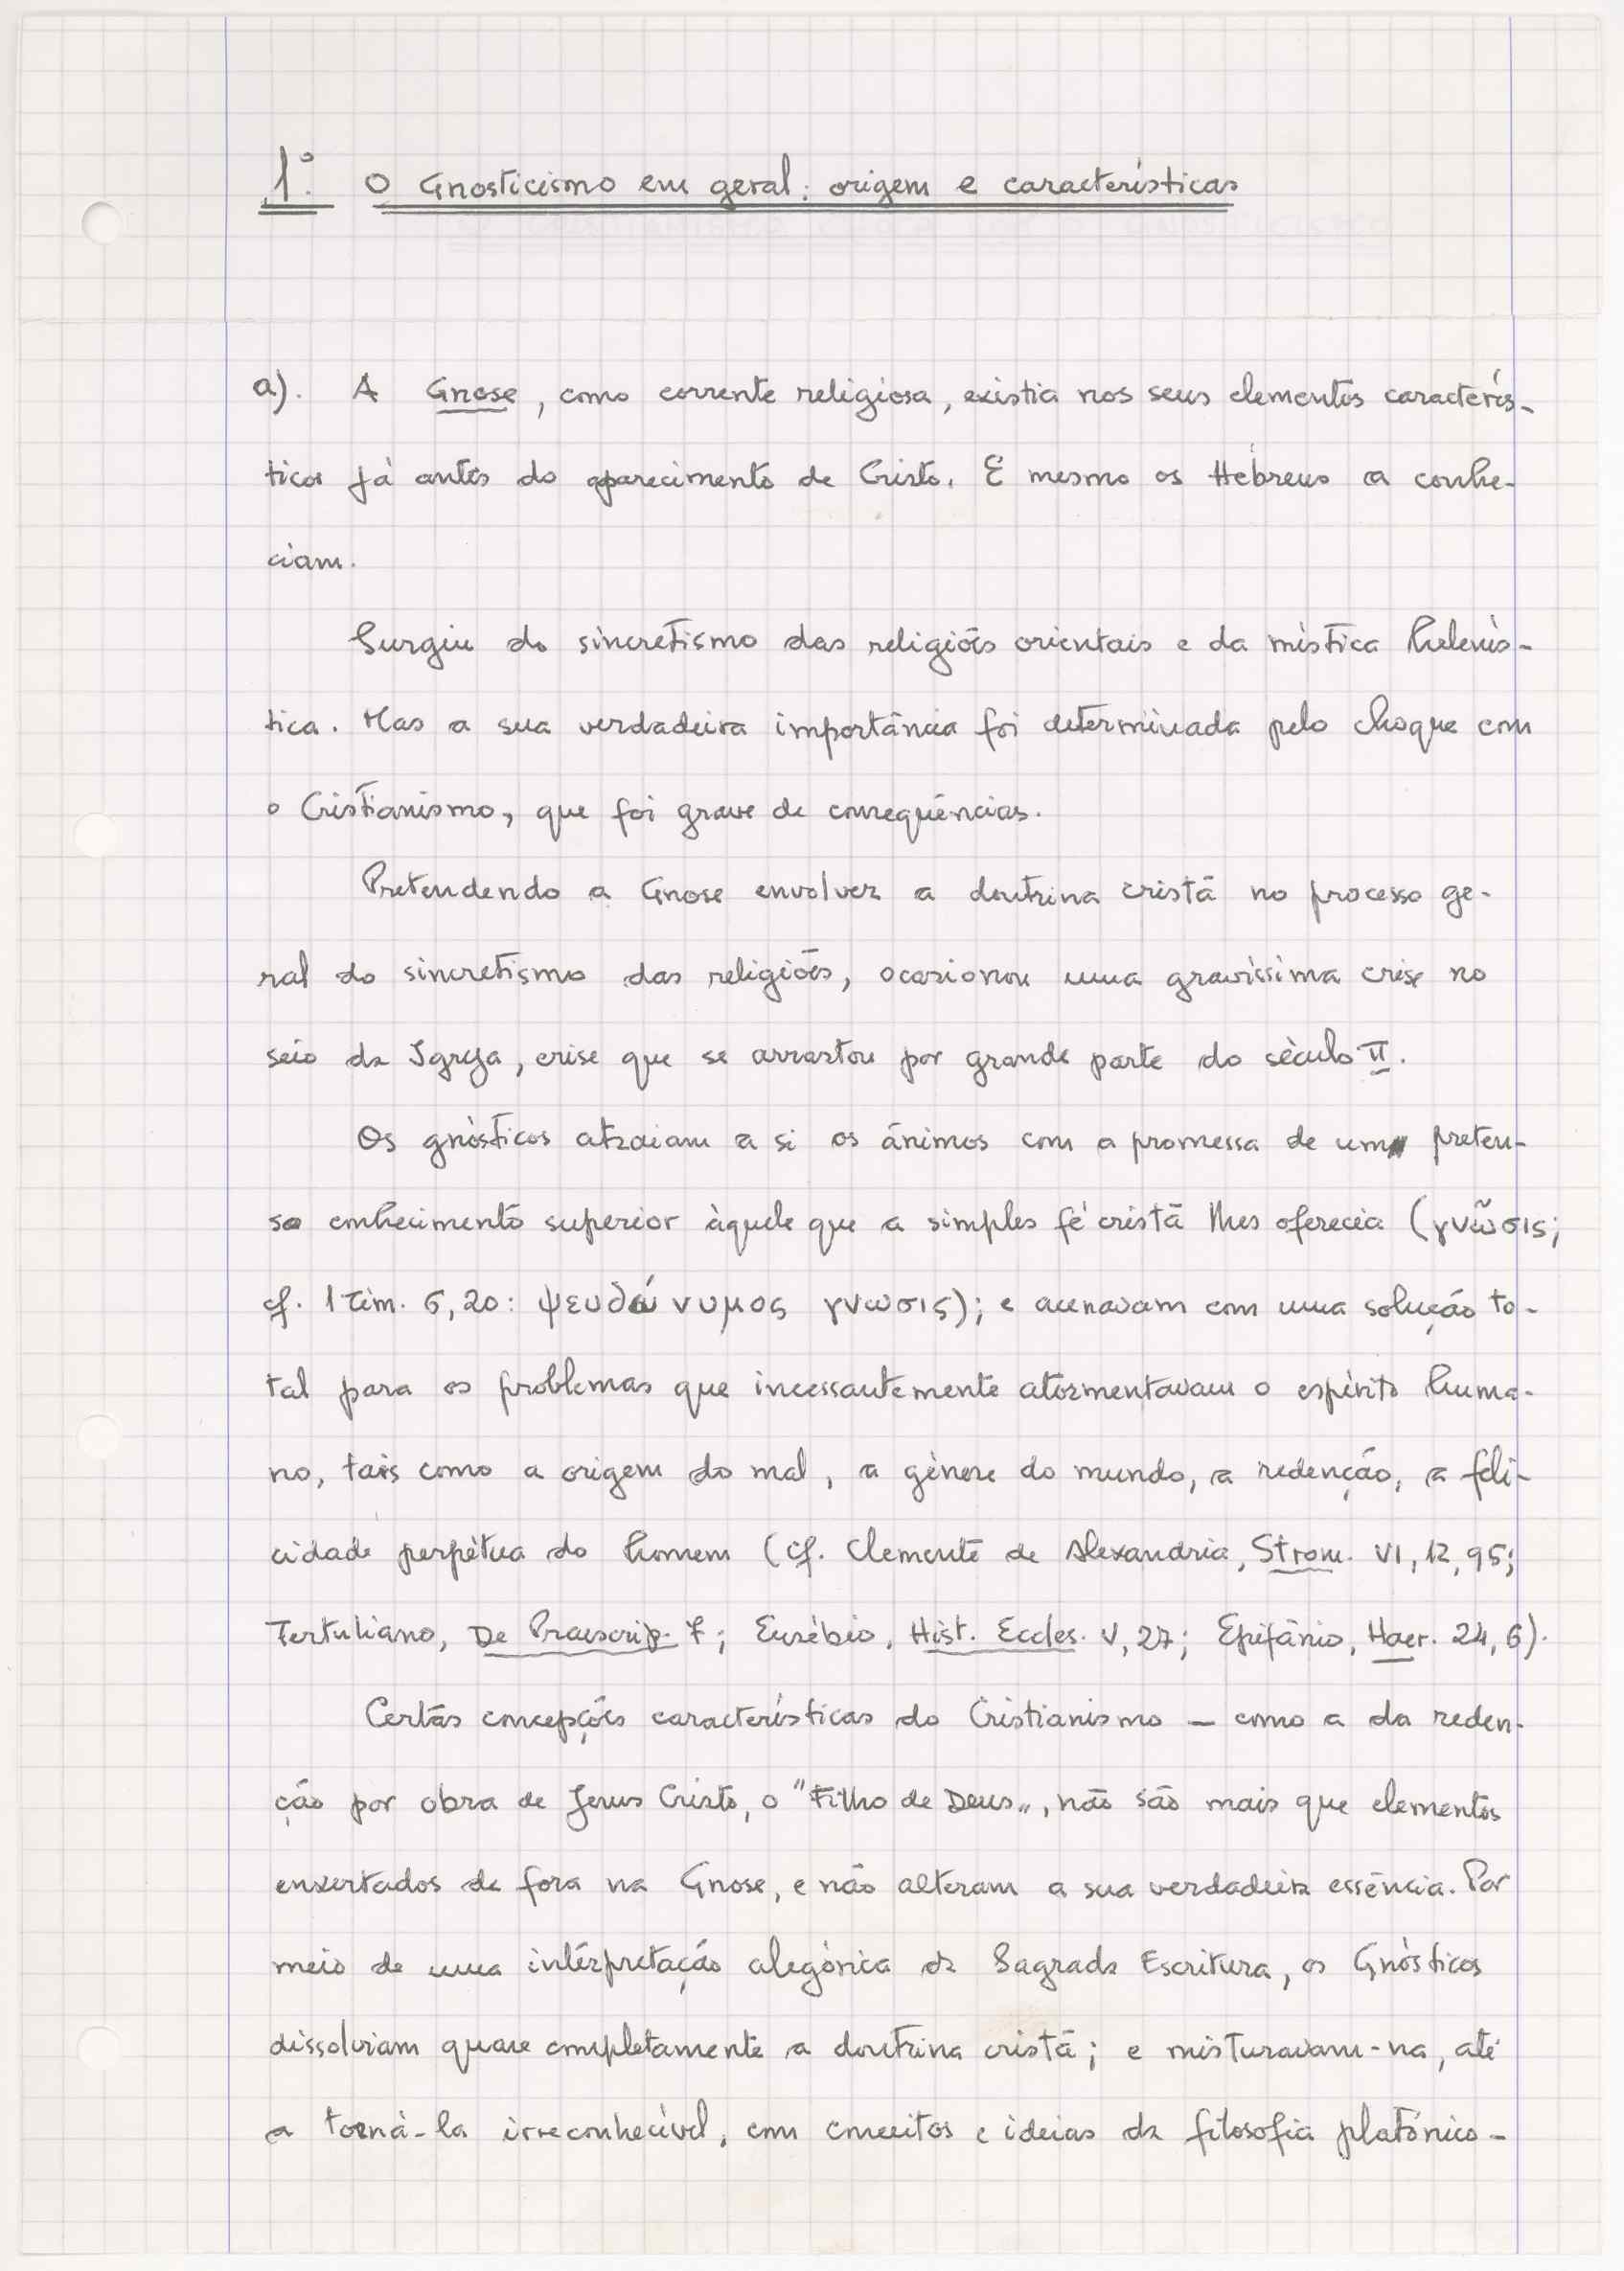 1º. O Gnosticismo em geral: origem e características
a). A Gnose, como corrente religiosa, existia nos seus elementos caracterís-
ticos já antes do aparecimento de Cristo. E mesmo os Hebreus a conhe-
ciam.
Surgiu do sincretismo das religiões orientais e da mística helenís-
tica. Mas a sua verdadeira importância foi determinada pelo choque com
o Cristianismo, que foi grave de conseqüências.
Pretendendo a Gnose envolver a doutrina cristã no processo ge-
ral do sincretismo das religiões, ocasionou uma gravíssima crise no
seio da Igreja, crise que se arrastou por grande parte do século II.
Os gnósticos atraíam a si os ânimos com a promessa de um preten-
so conhecimento superior àquele que a simples fé cristã lhes oferecia (γνῶσις;
cf. 1 Tim. 6, 20: ψευδώνυμος γνωσις); e acenavam com uma solução to-
tal para os problemas que incessantemente atormentavam o espírito huma-
no, tais como a origem do mal, a génese do mundo, a redenção, a feli-
cidade perpétua do homem (cf. Clemente de Alexandria, Strom. VI, 12, 95;
Tertuliano, De Praescrip. 7; Eusébio, Hist. Eccles. V, 27; Epifânio, Haer. 24, 6).
Certas concepções características do Cristianismo — como a da reden-
ção por obra de Jesus Cristo, o "Filho de Deus", não são mais que elementos
enxertados de fora na Gnose, e não alteram a sua verdadeira essência. Por
meio de uma intérpretação alegórica da Sagrada Escritura, os Gnósticos
dissolviam quase completamente a doutrina cristã; e misturavam-na, até
a torná-la irreconhecível, com conceitos e ideias da filosofia platónico-